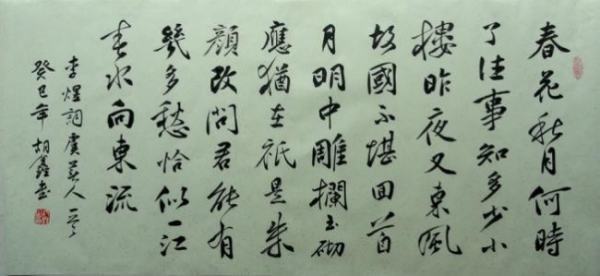 春花秋月何時
了往事知多少小
樓昨夜又東風
故國不堪回首
月明中雕欄玉砌
應猶在祇是朱
顏改問君能有
幾多愁恰似一江
春水向東流
李煜詞虞美人一首
癸巳年胡鑫书